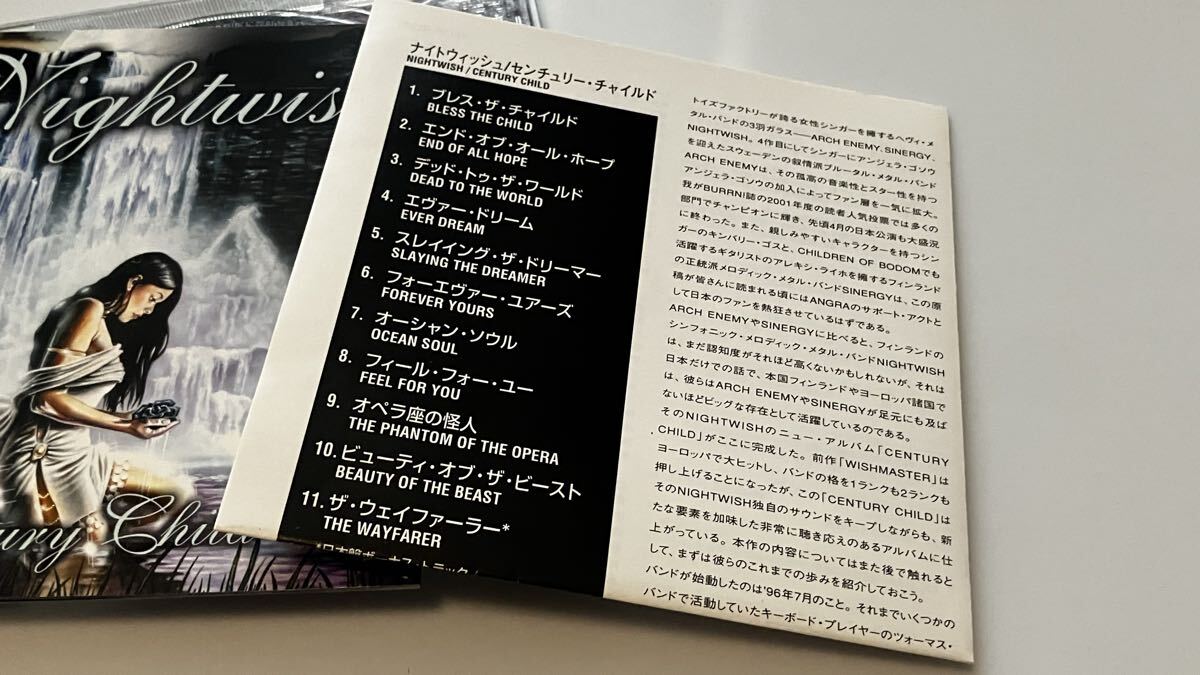 Nightwis
ury Child
ナイトウィッシュ/センチュリー・チャイルド
NIGHTWISH / CENTURY CHILD
1. ブレス・ザ・チャイルド
BLESS THE CHILD
2. エンド・オブ・オール・ホープ
END OF ALL HOPE
3. デッド・トゥ・ザ・ワールド
DEAD TO THE WORLD
4. エヴァー・ドリーム
EVER DREAM
5. スレイイング・ザ・ドリーマー
SLAYING THE DREAMER
6. フォーエヴァー・ユアーズ
FOREVER YOURS
7. オーシャン・ソウル
OCEAN SOUL
8. フィール・フォー・ユー
FEEL FOR YOU
9. オペラ座の怪人
THE PHANTOM OF THE OPERA
10. ビューティ・オブ・ザ・ビースト
BEAUTY OF THE BEAST
11. ザ・ウェイファーラー*
THE WAYFARER
*日本盤ボーナス・トラック
トイズファクトリーが誇る女性シンガーを擁するヘヴィ・メ
タル・バンドの3羽ガラス――ARCH ENEMY、SINERGY、
NIGHTWISH。4作目にしてシンガーにアンジェラ・ゴソウ
を迎えたスウェーデンの叙情派ブルータル・メタル・バンド
ARCH ENEMYは、その孤高の音楽性とスター性を持つ
アンジェラ・ゴソウの加入によってファン層を一気に拡大。
我がBURRN!誌の2001年度の読者人気投票では多くの
部門でチャンピオンに輝き、先頃4月の日本公演も大盛況
に終わった。また、親しみやすいキャラクターを持つシン
ガーのキンバリー・ゴスと、CHILDREN OF BODOMでも
活躍するギタリストのアレキシ・ライホを擁するフィンランド
の正統派メロディック・メタル・バンドSINERGYは、この原
稿が皆さんに読まれる頃にはANGRAのサポート・アクトと
して日本のファンを熱狂させているはずである。
ARCH ENEMYやSINERGYに比べると、フィンランドの
シンフォニック・メロディック・メタル・バンドNIGHTWISH
は、まだ認知度がそれほど高くないかもしれないが、それは
日本だけでの話で、本国フィンランドやヨーロッパ諸国で
は、彼らはARCH ENEMYやSINERGYが足元にも及ば
ないほどビッグな存在として活躍しているのである。
そのNIGHTWISHのニュー・アルバム「CENTURY
CHILD」がここに完成した。前作「WISHMASTER」は
ヨーロッパで大ヒットし、バンドの格を1ランクも2ランクも
押し上げることになったが、この「CENTURY CHILD」は
そのNIGHTWISH独自のサウンドをキープしながらも、新
たな要素を加味した非常に聴き応えのあるアルバムに仕
上がっている。本作の内容についてはまた後で触れると
して、まずは彼らのこれまでの歩みを紹介しておこう。
バンドが始動したのは'96年7月のこと。それまでいくつかの
バンドで活動していたキーボード・プレイヤーのツォーマス・